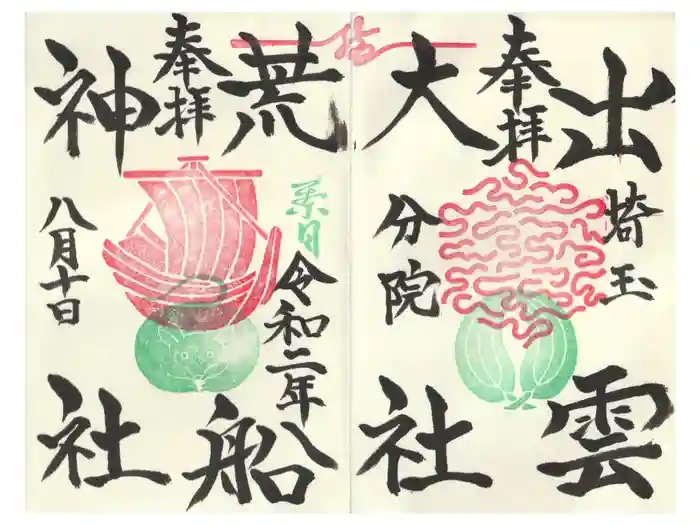 出雲
埼玉
奉拝
大社
分院
荒船
令和二年八
奉拝
神社
八月十日